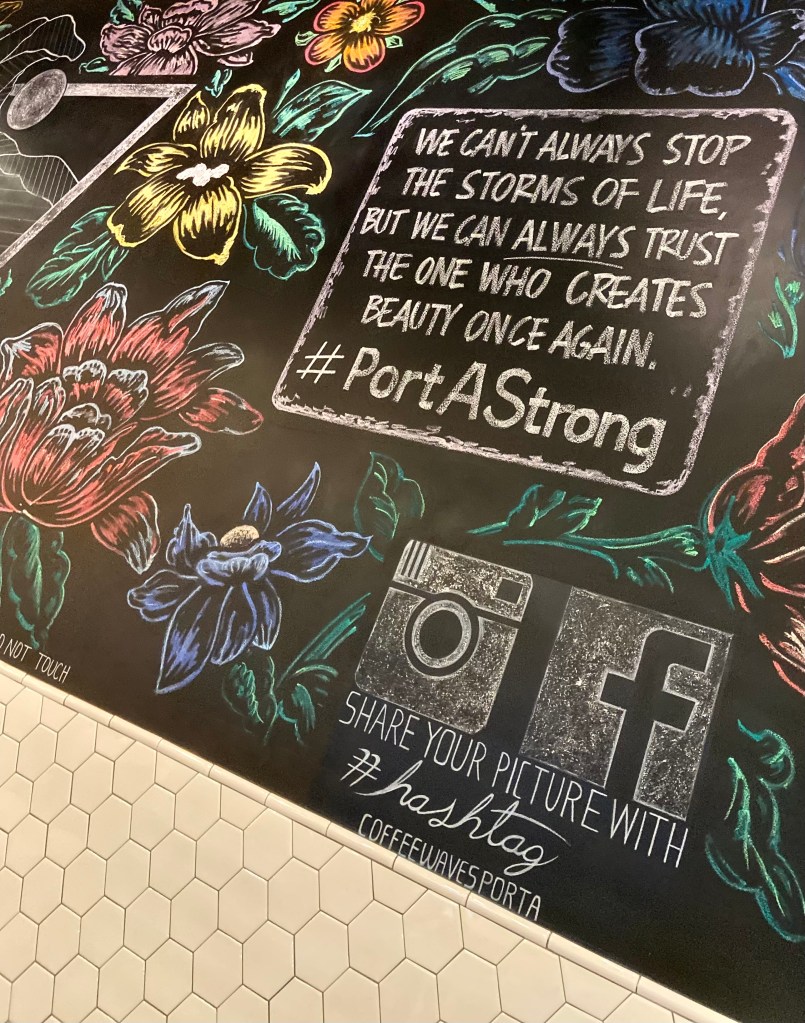 WE CAN'T ALWAYS STOP
THE STORMS OF LIFE,
BUT WE CAN ALWAYS TRUST
THE ONE WHO CREATES
BEAUTY ONCE AGAIN.
#PortAStrong
NOT TOUCH
f
SHARE YOUR PICTURE WITH
#hashtag
COFFEEWAVESPORTA